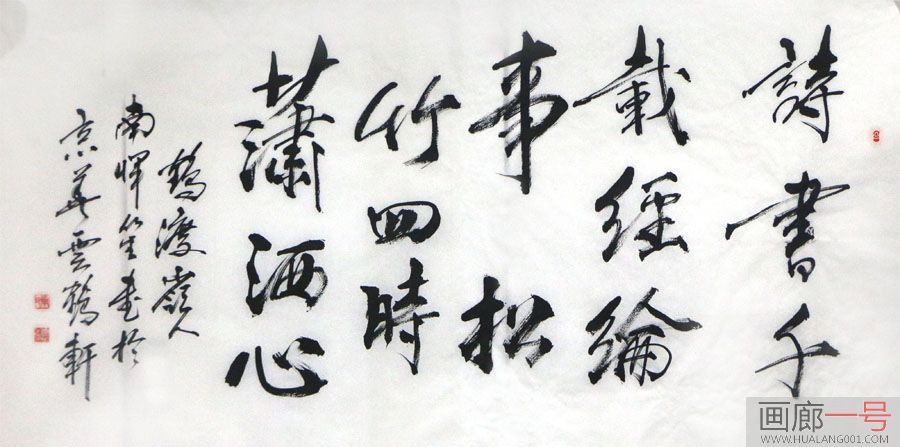 詩書千
載經綸
事 松
竹四時
蕭洒心
鶴渡嶺人
南暉筆書於
京華雲鶴軒
画廊一号
WWW.HUALANG001.COM